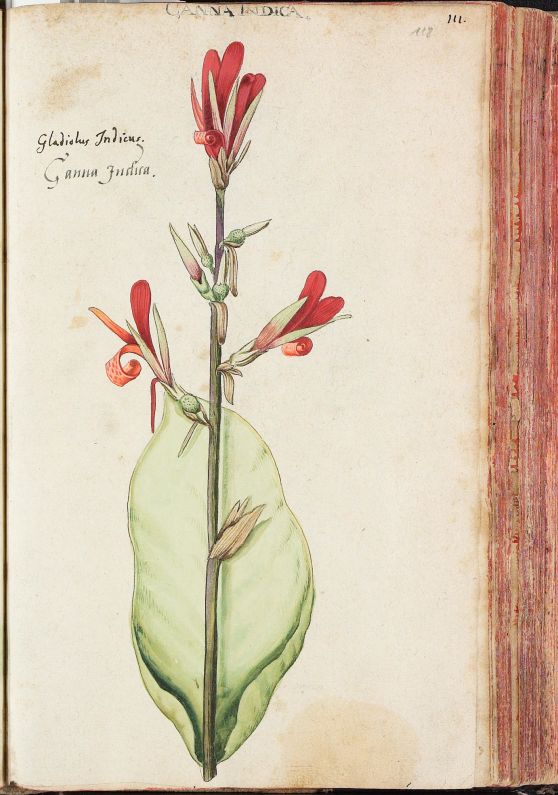 CANNA INDICA.
111.
118
Gladiolus Indicus.
Canna Indica.